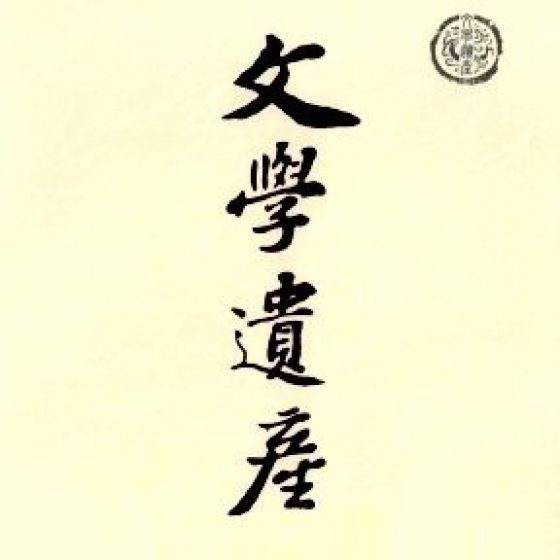 文學遺產